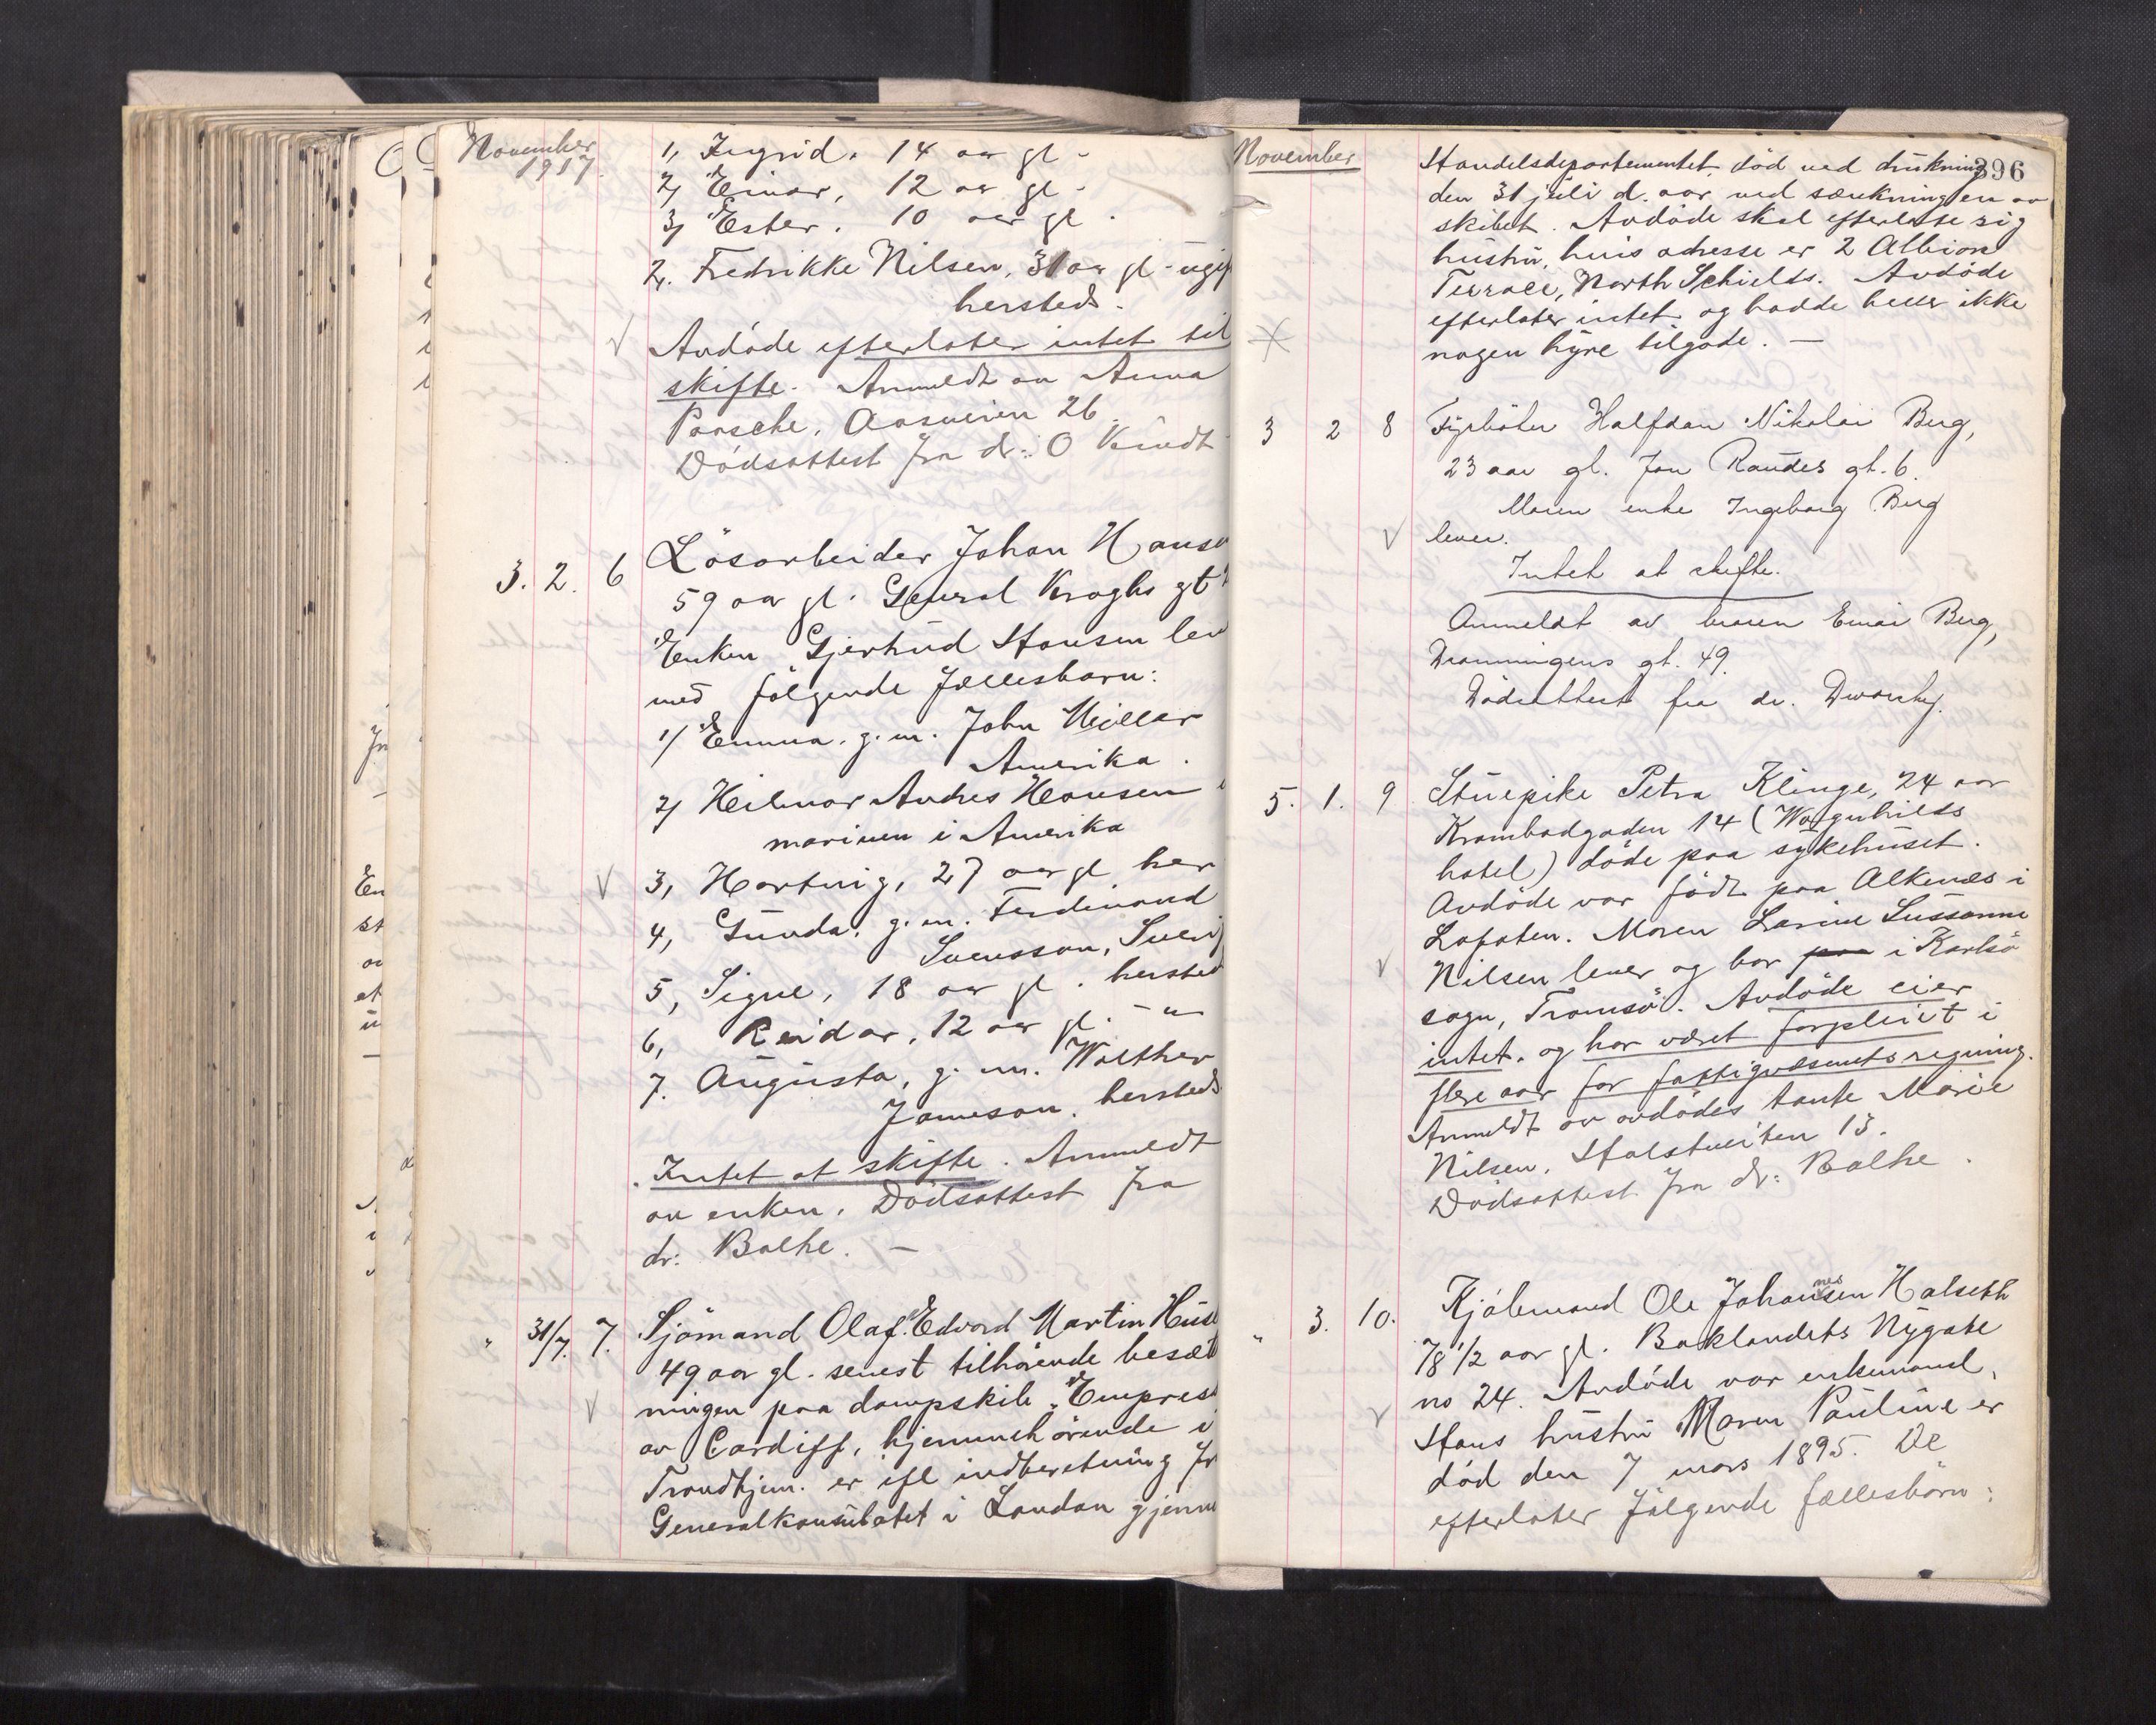 November
1917.
1, Ingrid, 14 aar gl -
2, Einar, 12 aar gl -
3, Ester, 10 aar gl -
2. Fredrikke Nilsen, 31 aar gl - ugif
hersteds.
Avdöde efterlater intet til
skifte. Anmeldt av Anna
Paasche, Aasveien 26
Dödsattest fra dr: O Kindt
3. 2. 6 Lösarbeider Johan Hanse
59 aar gl. General Kroghs gt
Enken Gjertrud Hansen lev
med følgende fællesbarn:
1) Emma, g. m. John Miller
Amerika.
2) Heilmar Andres Hansen i
marinen i Amerika
3, Hartvig, 27 aar gl her
4, Gunda, g. m. Ferdinand
Svensson, Sverig
5, Signe, 18 aar gl. hersted
6, Reidar, 12 aar gl. - " -
7. Augusta, g. m. Walther
Jameson, hersteds.
Intet at skifte. Anmeldt
av enken. Dödsattest fra
dr: Bolhe. -
" 31/7. 7. Sjömand Olaf Edvard Martin Hus
49 aar gl. senest tilhörende besæt
ningen paa dampskib "Empres
av Cardiff, hjemmehörende i
Trondhjem. er ifl indberetning fr
Generalkonsulatet i London gjenn
November 396
Handelsdepartementet, död ved drukning
den 31 juli d. aar, ved sænkningen av
skibet. Avdöde skal efterlate sig
hustru, hvis adresse er 2 Albion
Terrace, North Schields. Avdöde
efterlater intet og hadde heller ikke
nogen hyre tilgode. -
3 2 8 Fyrböter Halfdan Nikolai Berg,
23 aar gl. Jon Raudes gt. 6.
Moren enke Ingeborg Berg
lever.
Intet at skifte.
Anmeldt av broren Einar Berg,
Dronningens gt. 49.
Dödsattest fra dr. Dworsky.
5. 1. 9 Stuepike Petra Klinge, 24 aar
Krambodgaden 14 (Wagnhilds
hotel) döde paa sykehuset.
Avdöde var födt paa Alkenæs i
Lofoten. Moren Larine Sussanne
Nilsen lever og bor paa i Karlsö
sogn, Tromsö. Avdöde eier
intet, og har været forpleiet i
flere aar for fattigvæsenets regning.
Anmeldt av avdödes tante Marie
Nilsen, Halstveiten 13.
Dödsattest fra dr: Bolhe.
" 3. 10. Kjölemand Ole Johannesen Halseth
78 1/2 aar gl. Baklandets Nygate
no 24. Avdöde var enkemand,
Hans hustru Maren Pauline er
död den 7 mars 1895. De
efterlater følgende fællesbörn: